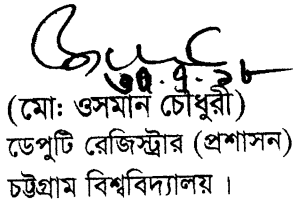 (মো: ওসমান চৌধুরী)
ডেপুটি রেজিস্ট্রার (প্রশাসন)
চট্টগ্রাম বিশ্ববিদ্যালয় ।